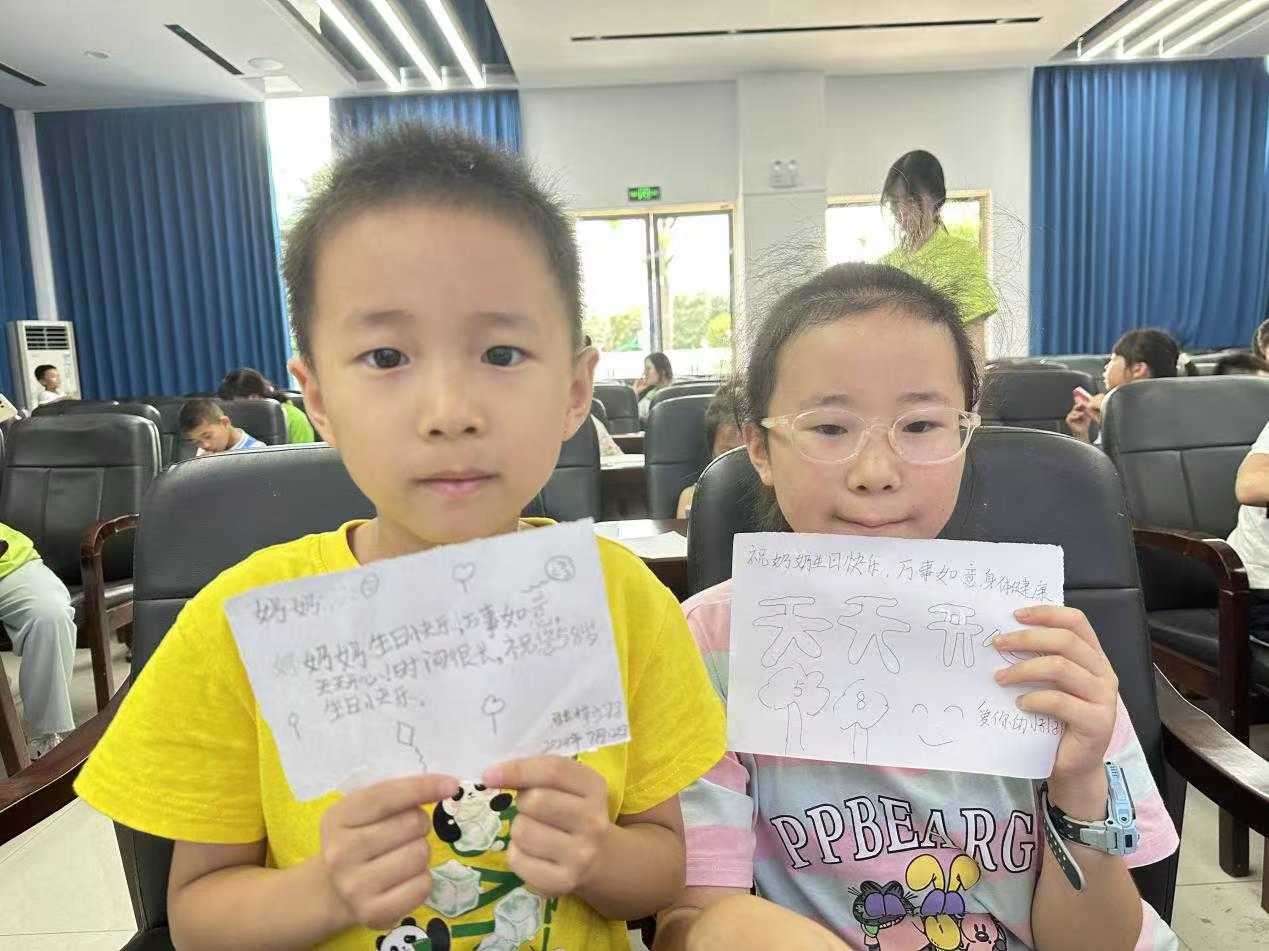 奶奶
奶奶生日快乐,万事如意
天天开心!时间很长,祝您58岁
生日快乐。
2024年7月
祝奶奶生日快乐,万事如意,身体健康
天天开心
58
爱你的
PPBEARG